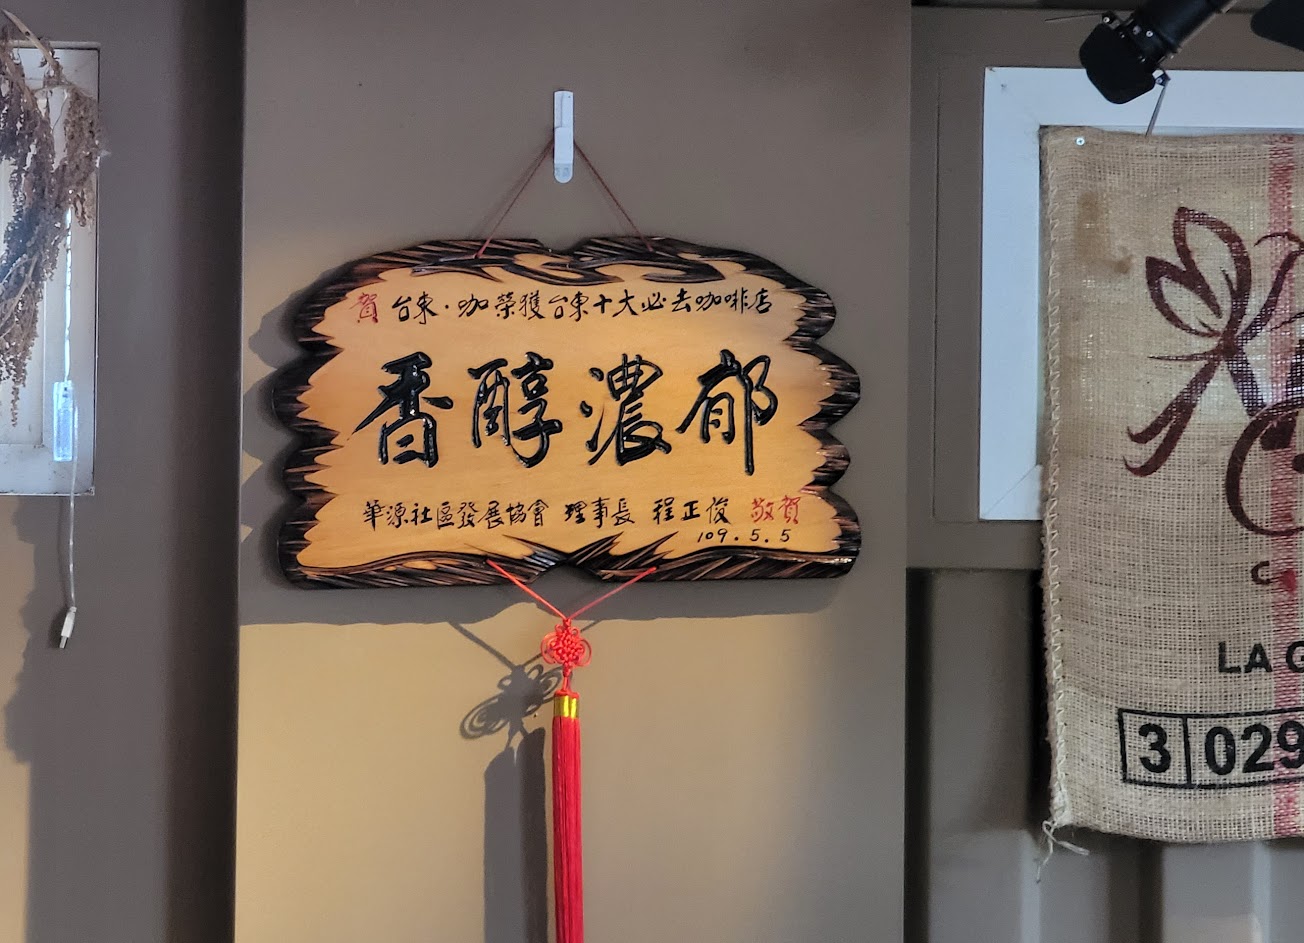 賀 台東·咖榮獲台東十大必去咖啡店
香醇濃郁
華源社區發展協會 理事長 程正俊 敬賀
109.5.5
LA
3 029